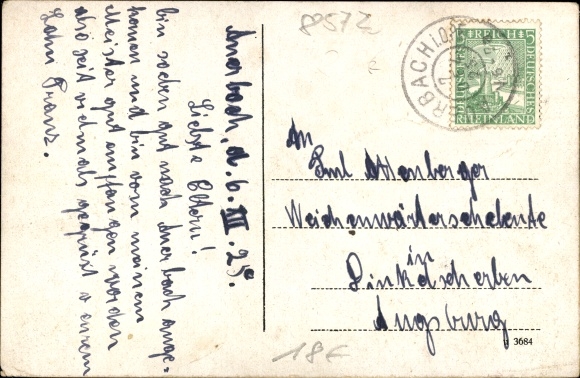 8957Z
Auerbach, d. 6. XII. 25.
Liebste Eltern!
bin soeben gut nach Auerbach ange-
komen und bin vom meinem
Meister gut empfangen worden
also seit vielmals gegrüßt v. eurem
Sohn Franz.
REICH
5 5
DEUTSCHES
RHEINLAND
RBACH i.OPF
An
Eml Attenberger
Weichenwärterschebente
in
Linkdscherben
Augsburg
18€
3684